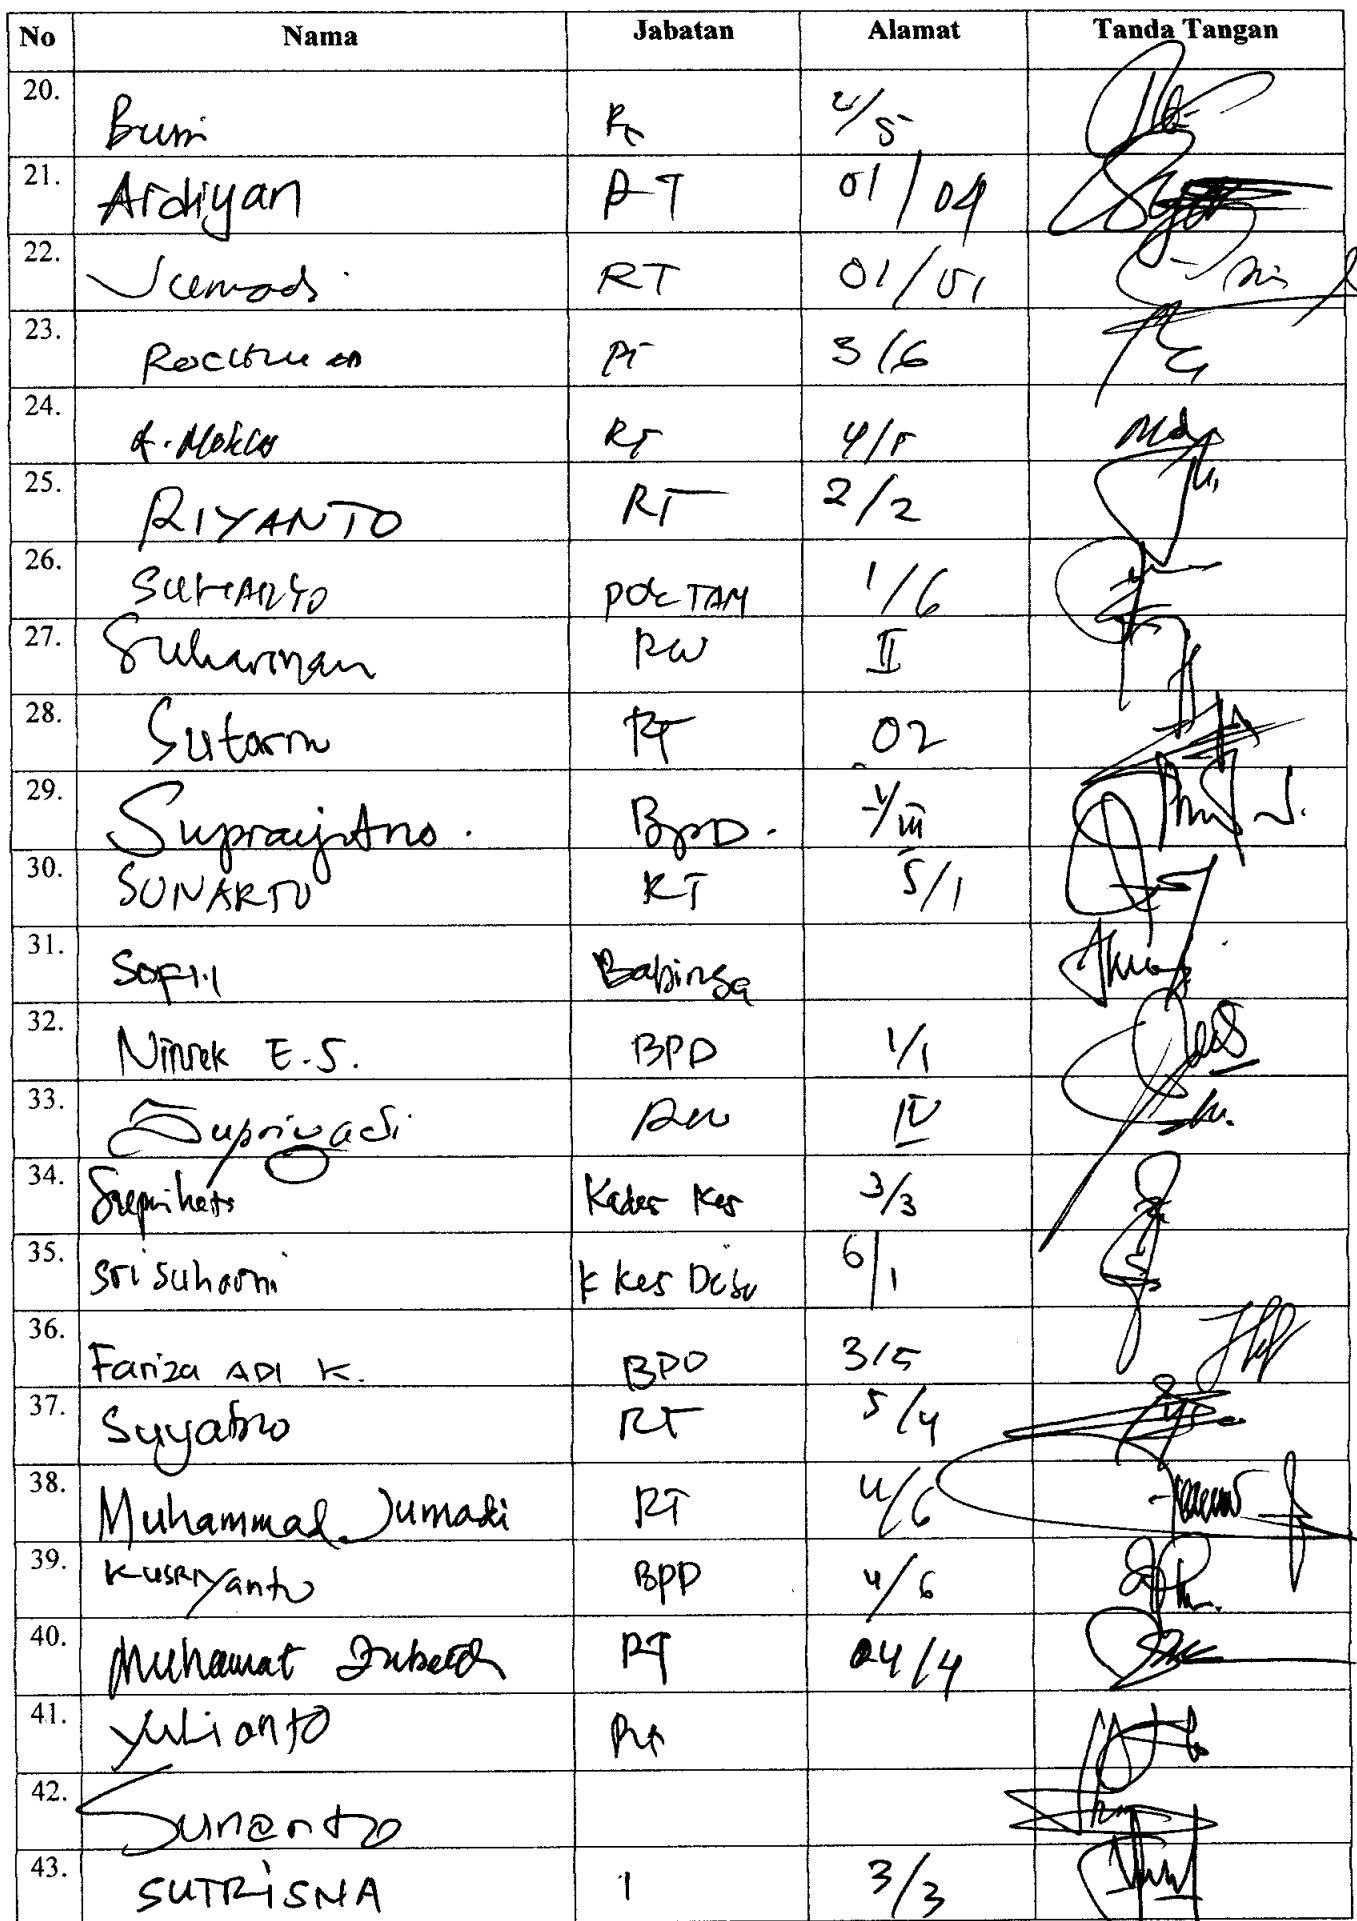 No Nama Jabatan Alamat Tanda Tangan
20. Rt /5
21. Ardiyan RT 01/04
22. Jumadi RT 01/01
23. RT 3/6
24. RT
25. RIYANTO RT 2/2
26. SUHARYO POKTAN 1/6
27. Suharman RW II
28. RT 02
29. BPD.
30. SUNARTO RT 5/1
31. Babinsa
32. E.S. BPD 1/1
33. Supriyadi RW IV
34. Suprihati Kader Kes 3/3
35. Sri Suharni K Kes Desa 6/1
36. Fariza ADI K. BPD 3/5
37. Suyatno RT 5/4
38. Muhammad Jumadi RT 4/6
39. KUSRIYanto BPD 4/6
40. Muhamat RT 04/4
41. Yulianto Rt
42. Sunanto
43. SUTRISNA 1 3/3